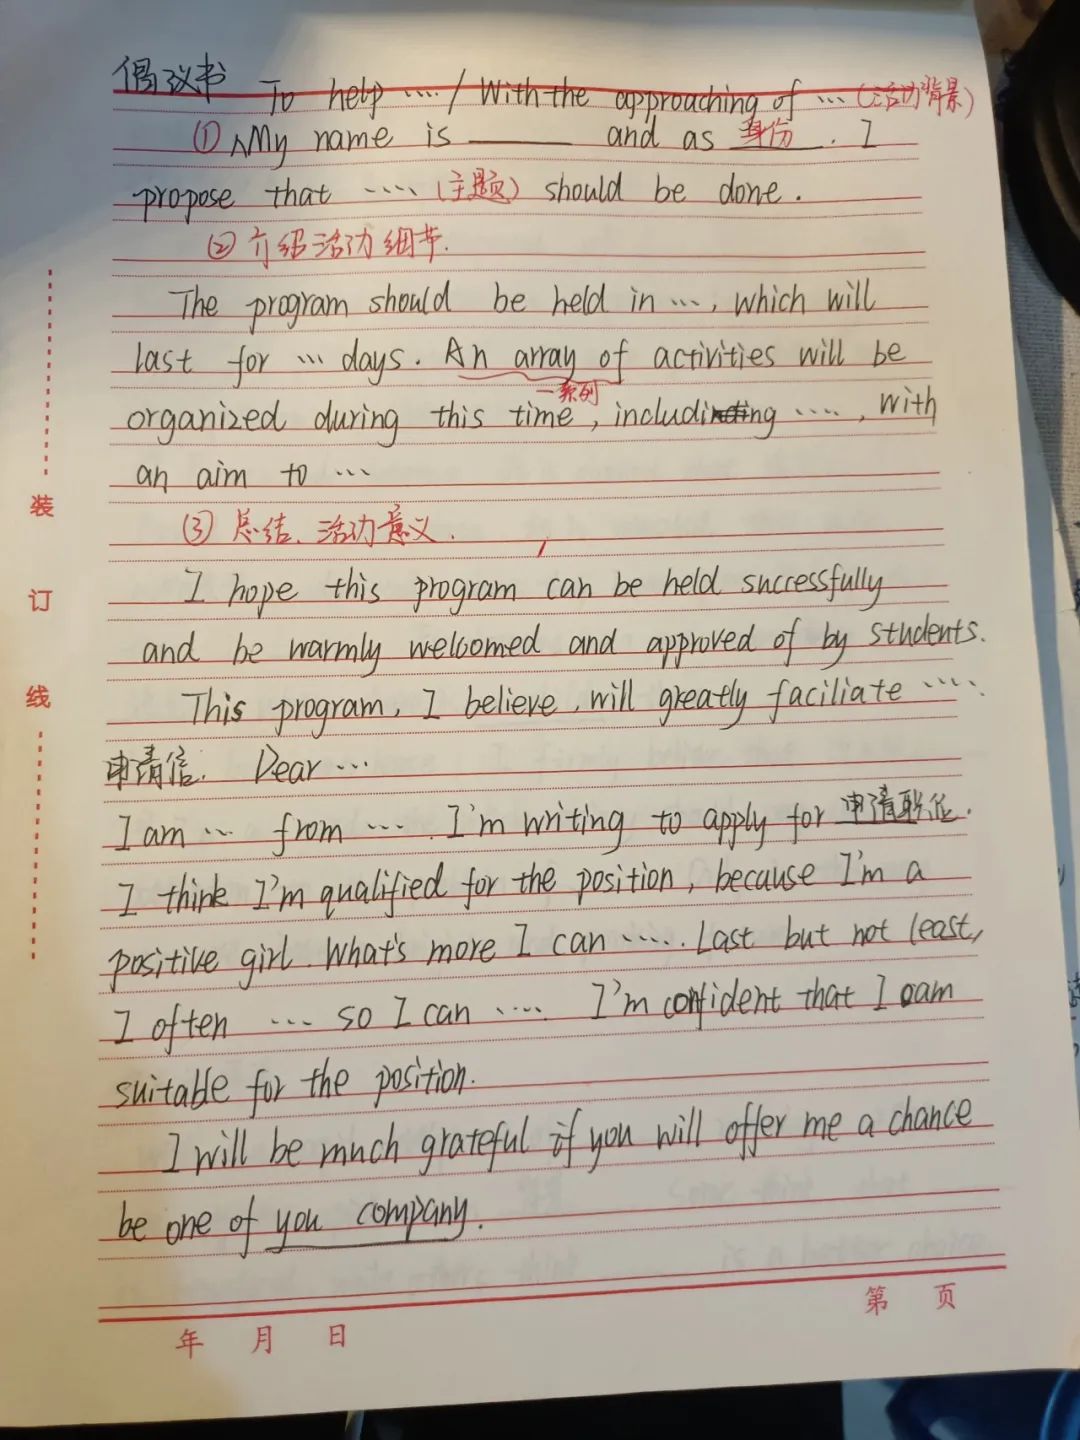 倡议书 To help ····/ With the approaching of ··· (活动背景)
① ∧My name is ______ and as 身份. I
propose that ····(主题) should be done.
② 介绍活动细节.
The program should be held in ···, which will
last for ··· days. An array of activities will be
一系列
organized during this time, including ····, with
an aim to ···
③ 总结、活动意义.
I hope this program can be held successfully
and be warmly welcomed and approved of by students.
This program, I believe, will greatly faciliate ····.
申请信. Dear ···
I am ··· from ···. I'm writing to apply for 申请职位.
I think I'm qualified for the position, because I'm a
positive girl. What's more I can ····. Last but not least,
I often ··· so I can ···. I'm confident that I am
suitable for the position.
I will be much grateful if you will offer me a chance
be one of you company.
装
订
线
第 页
年 月 日